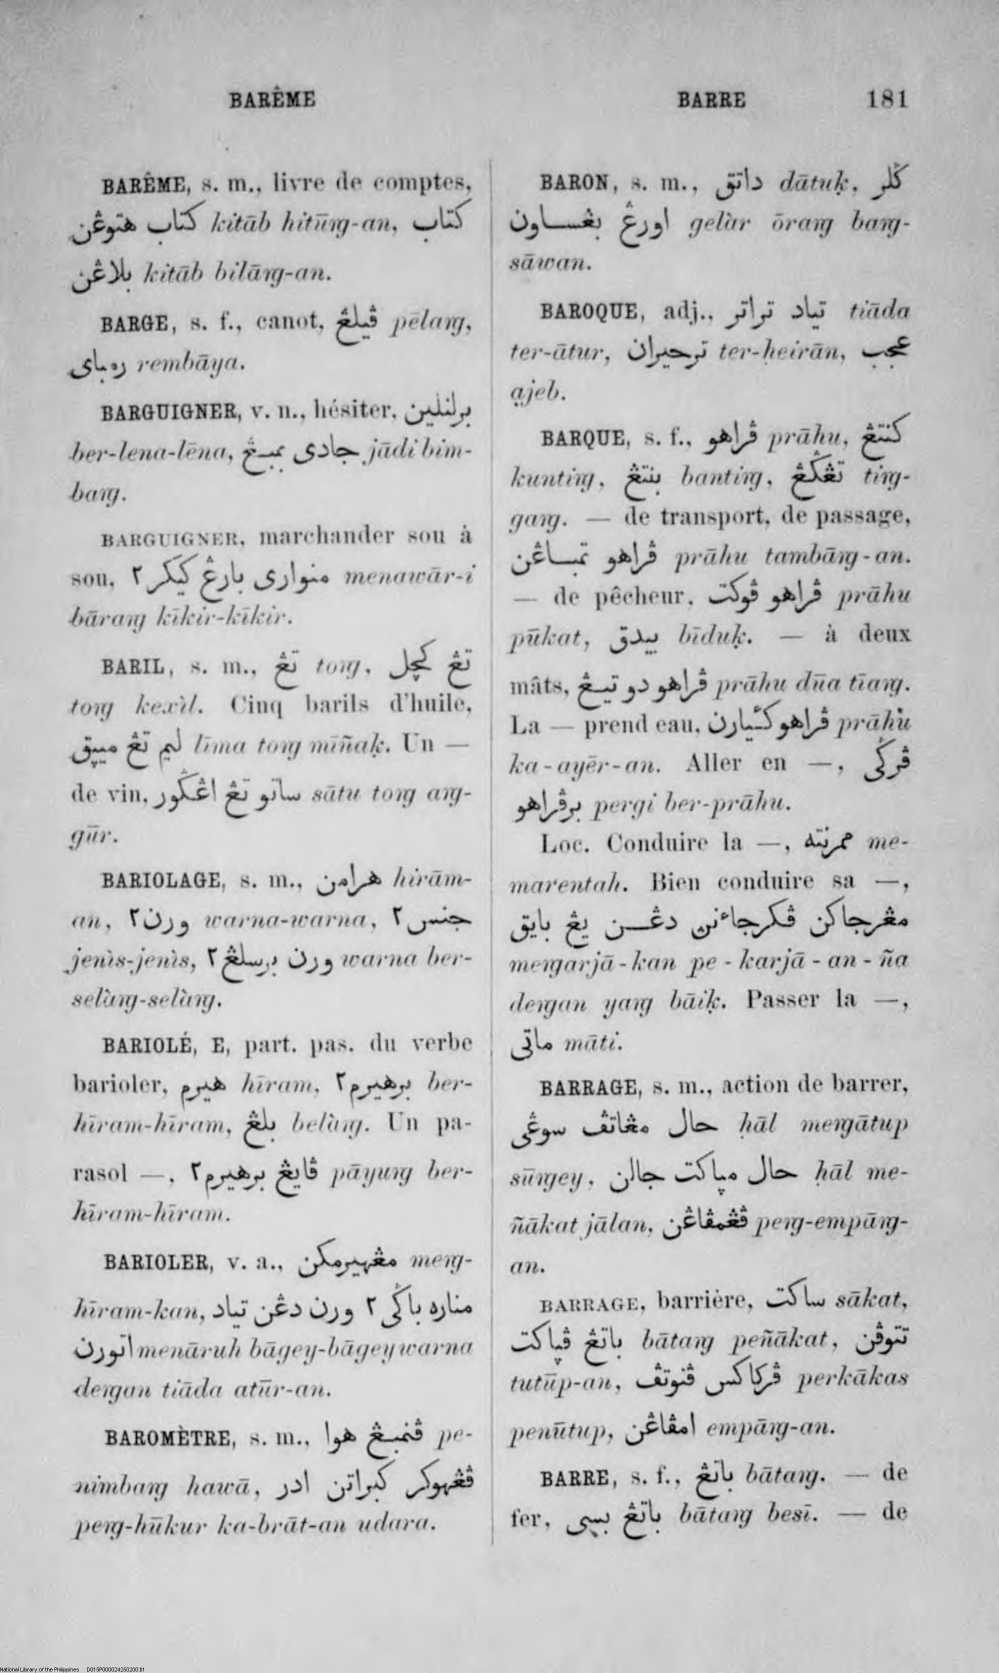 BARÊME
BARRE 181
BARÊME, s. m., livre de comptes,
كتاب هتوڠن kitāb hitūng-an, كتاب
بلاڠن kitāb bilāng-an.
BARGE, s. f., canot, ڤيلڠ pēlang,
رمباى rembāya.
BARGUIGNER, v. n., hésiter, برلنلين
ber-lena-lēna, جادى بمبڠ jādi bim-
bang.
BARGUIGNER, marchander sou à
sou, منوارى بارڠ كيكر٢ menawār-i
bārang kīkir-kīkir.
BARIL, s. m., تڠ tong, تڠ كچل
tong kexìl. Cinq barils d'huile,
ليم تڠ ميپق līma tong mīñaḳ. Un —
de vin, ساتو تڠ اڠݢور sātu tong ang-
gūr.
BARIOLAGE, s. m., هرامن hirām-
an, ورن٢ warna-warna, جنس٢
jenìs-jenìs, ورن برسلڠ٢ warna ber-
selàng-selàng.
BARIOLÉ, E, part. pas. du verbe
barioler, هيرم hīram, برهيرم٢ ber-
hīram-hīram, بلڠ belàng. Un pa-
rasol —, ڤايڠ برهيرم٢ pāyung ber-
hīram-hīram.
BARIOLER, v. a., مڠهيرمكن meng-
hīram-kan, مناره باݢى٢ ورن دڠن تياد
اتورن menāruh bāgey-bāgey warna
dengan tiāda atūr-an.
BAROMÈTRE, s. m., ڤنمبڠ هوا pe-
nimbang hawā, ڤڠهوكر كبراتن ادر
peng-hūkur ka-brāt-an udara.
BARON, s. m., داتق dātuḳ, ݢلر
اورڠ بڠساون gelàr ōrang bang-
sāwan.
BAROQUE, adj., تياد تراتر tiāda
ter-ātur, ترحيران ter-ḥeirān, عجب
ạjeb.
BARQUE, s. f., ڤراهو prāhu, كنتڠ
kunting, بنتڠ banting, تڠݢڠ ting-
gang. — de transport, de passage,
ڤراهو تمباڠن prāhu tambāng-an.
— de pêcheur, ڤراهو ڤوكت prāhu
pūkat, بيدق bīduḳ. — à deux
mâts, ڤراهو دو تيڠ prāhu dūa tīang.
La — prend eau, ڤراهو كأيارن prāhu
ka-ayēr-an. Aller en —, ڤرݢى
برڤراهو pergi ber-prāhu.
Loc. Conduire la —, ممرنته me-
marentah. Bien conduire sa —,
مڠرجاكن ڤكرجاءنڽ دڠن يڠ بايق
mengarjā-kan pe-karjā-an-ña
dengan yang bāiḳ. Passer la —,
ماتى māti.
BARRAGE, s. m., action de barrer,
حال مڠاتڤ سوڠى ḥāl mengātup
sūngey, حال مپاكت جالن ḥāl me-
ñākat jālan, ڤڠمڤاڠن peng-empāng-
an.
BARRAGE, barrière, ساكت sākat,
باتڠ ڤپاكت bātang peñākat, تتوڤن
tutūp-an, ڤركاكس ڤنوتڤ perkākas
penūtup, امڤاڠن empāng-an.
BARRE, s. f., باتڠ bātang. — de
fer, باتڠ بسى bātang besī. — de
National Library of the Philippines